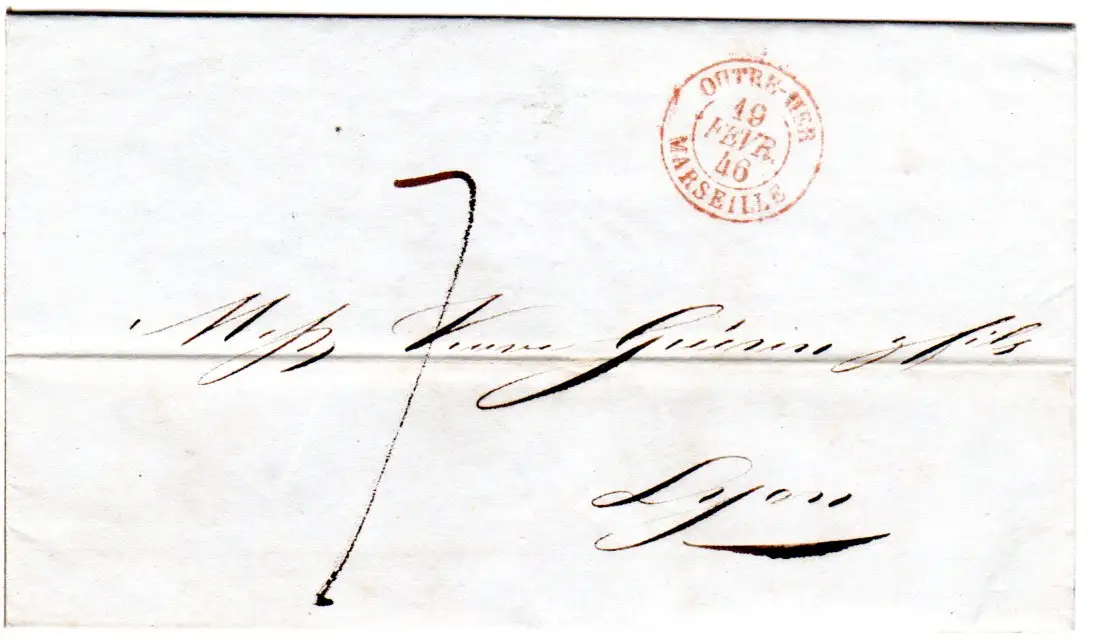 OUTRE-MER
19
FEVR.
46
MARSEILLE
7
Messrs Veuve Guérin & fils
Lyon